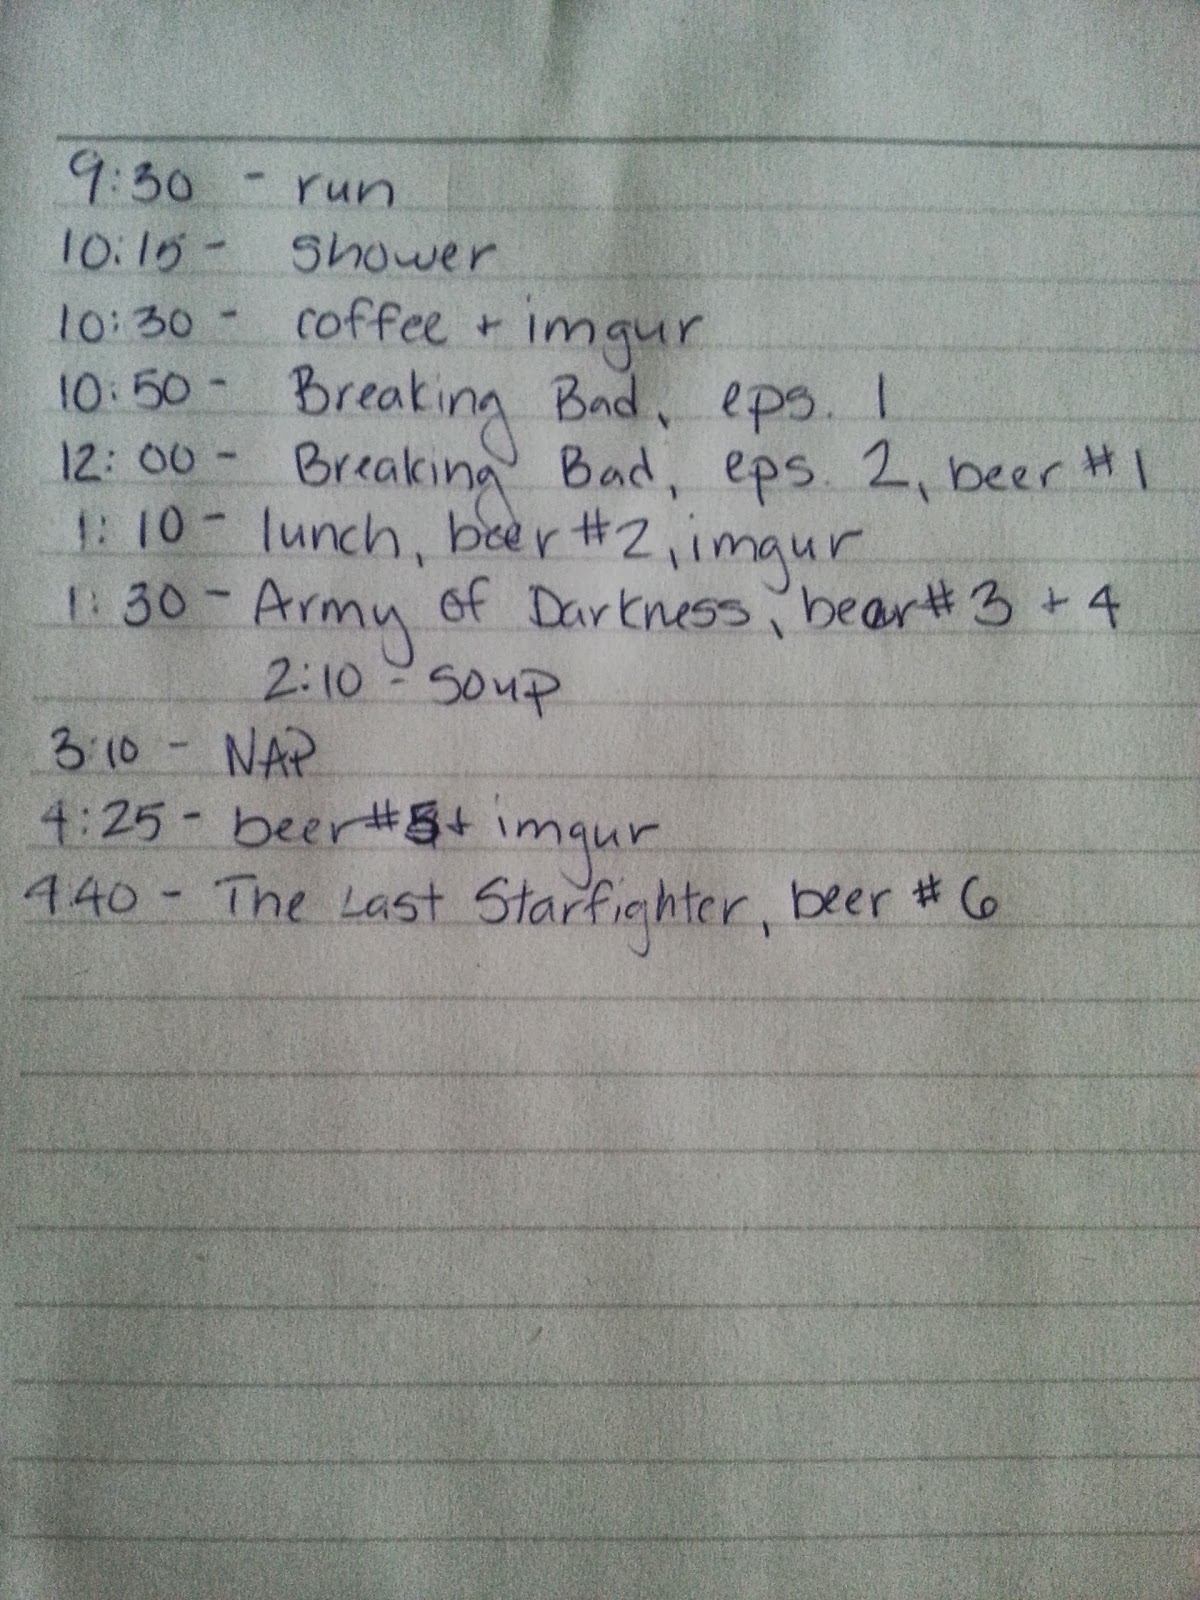 9:30 - run
10:15 - shower
10:30 - coffee + imgur
10:50 - Breaking Bad, eps. 1
12:00 - Breaking Bad, eps. 2, beer #1
1:10 - lunch, beer #2, imgur
1:30 - Army of Darkness, beer #3 + 4
2:10 - soup
3:10 - NAP
4:25 - beer #5 + imgur
4:40 - The Last Starfighter, beer #6